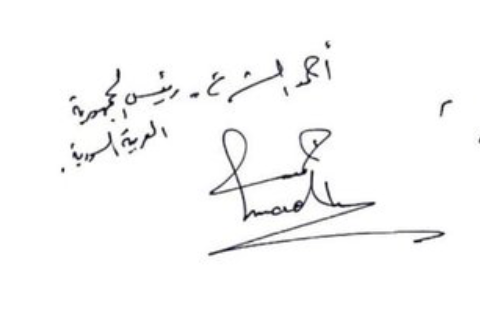 أحمد الشرع. رئيس الجمهورية
العربية السورية.